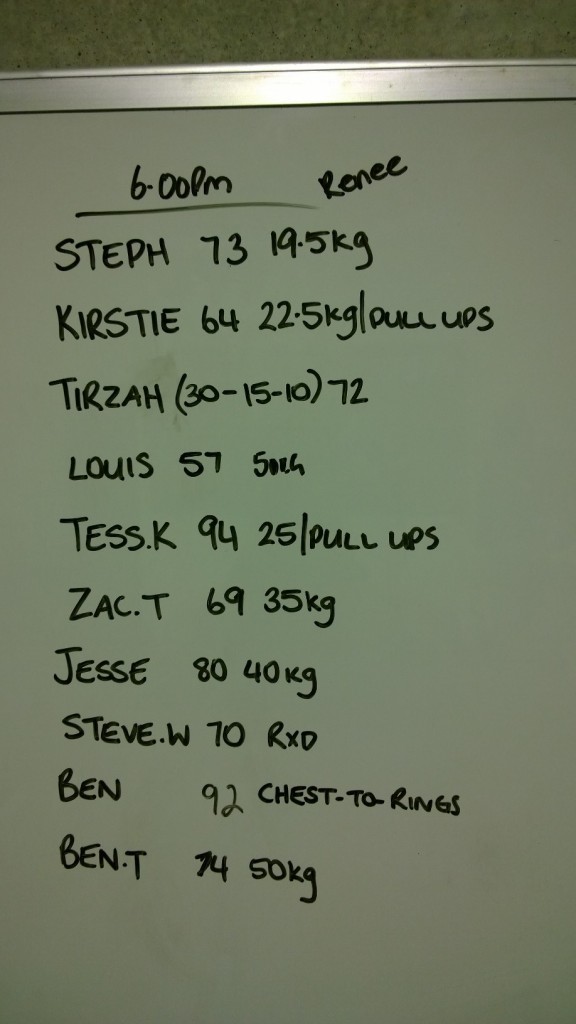 6.00Pm Renee
STEPH 73 19.5kg
KIRSTIE 64 22.5kg/PULL UPS
TIRZAH (30-15-10) 72
LOUIS 57 50KG
TESS.K 94 25/PULL UPS
ZAC.T 69 35kg
JESSE 80 40kg
STEVE.W 70 RXD
BEN 92 CHEST-TO-RINGS
BEN.T 74 50kg